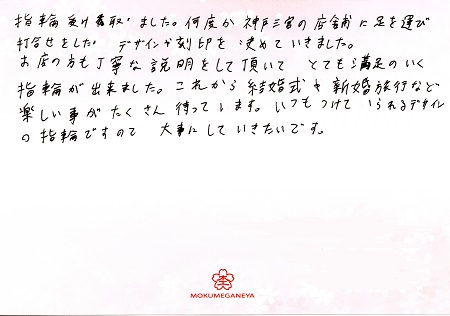 指輪受け取りました。何度か神戸三宮の店舗に足を運び
打合せをした デザインか刻印を決めていきました。
お店の方も丁寧な説明をして頂いて とても満足のいく
指輪が出来ました。これから結婚式や新婚旅行など
楽しい事がたくさん待っています。いつもつけていられるデザイン
の指輪ですので 大事にしていきたいです。
杢
MOKUMEGANEYA